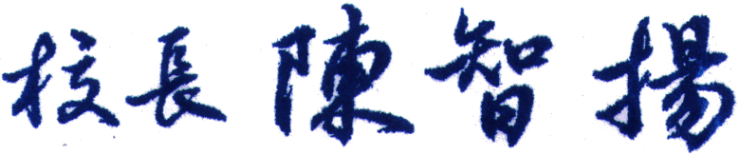 校長 陳智揚